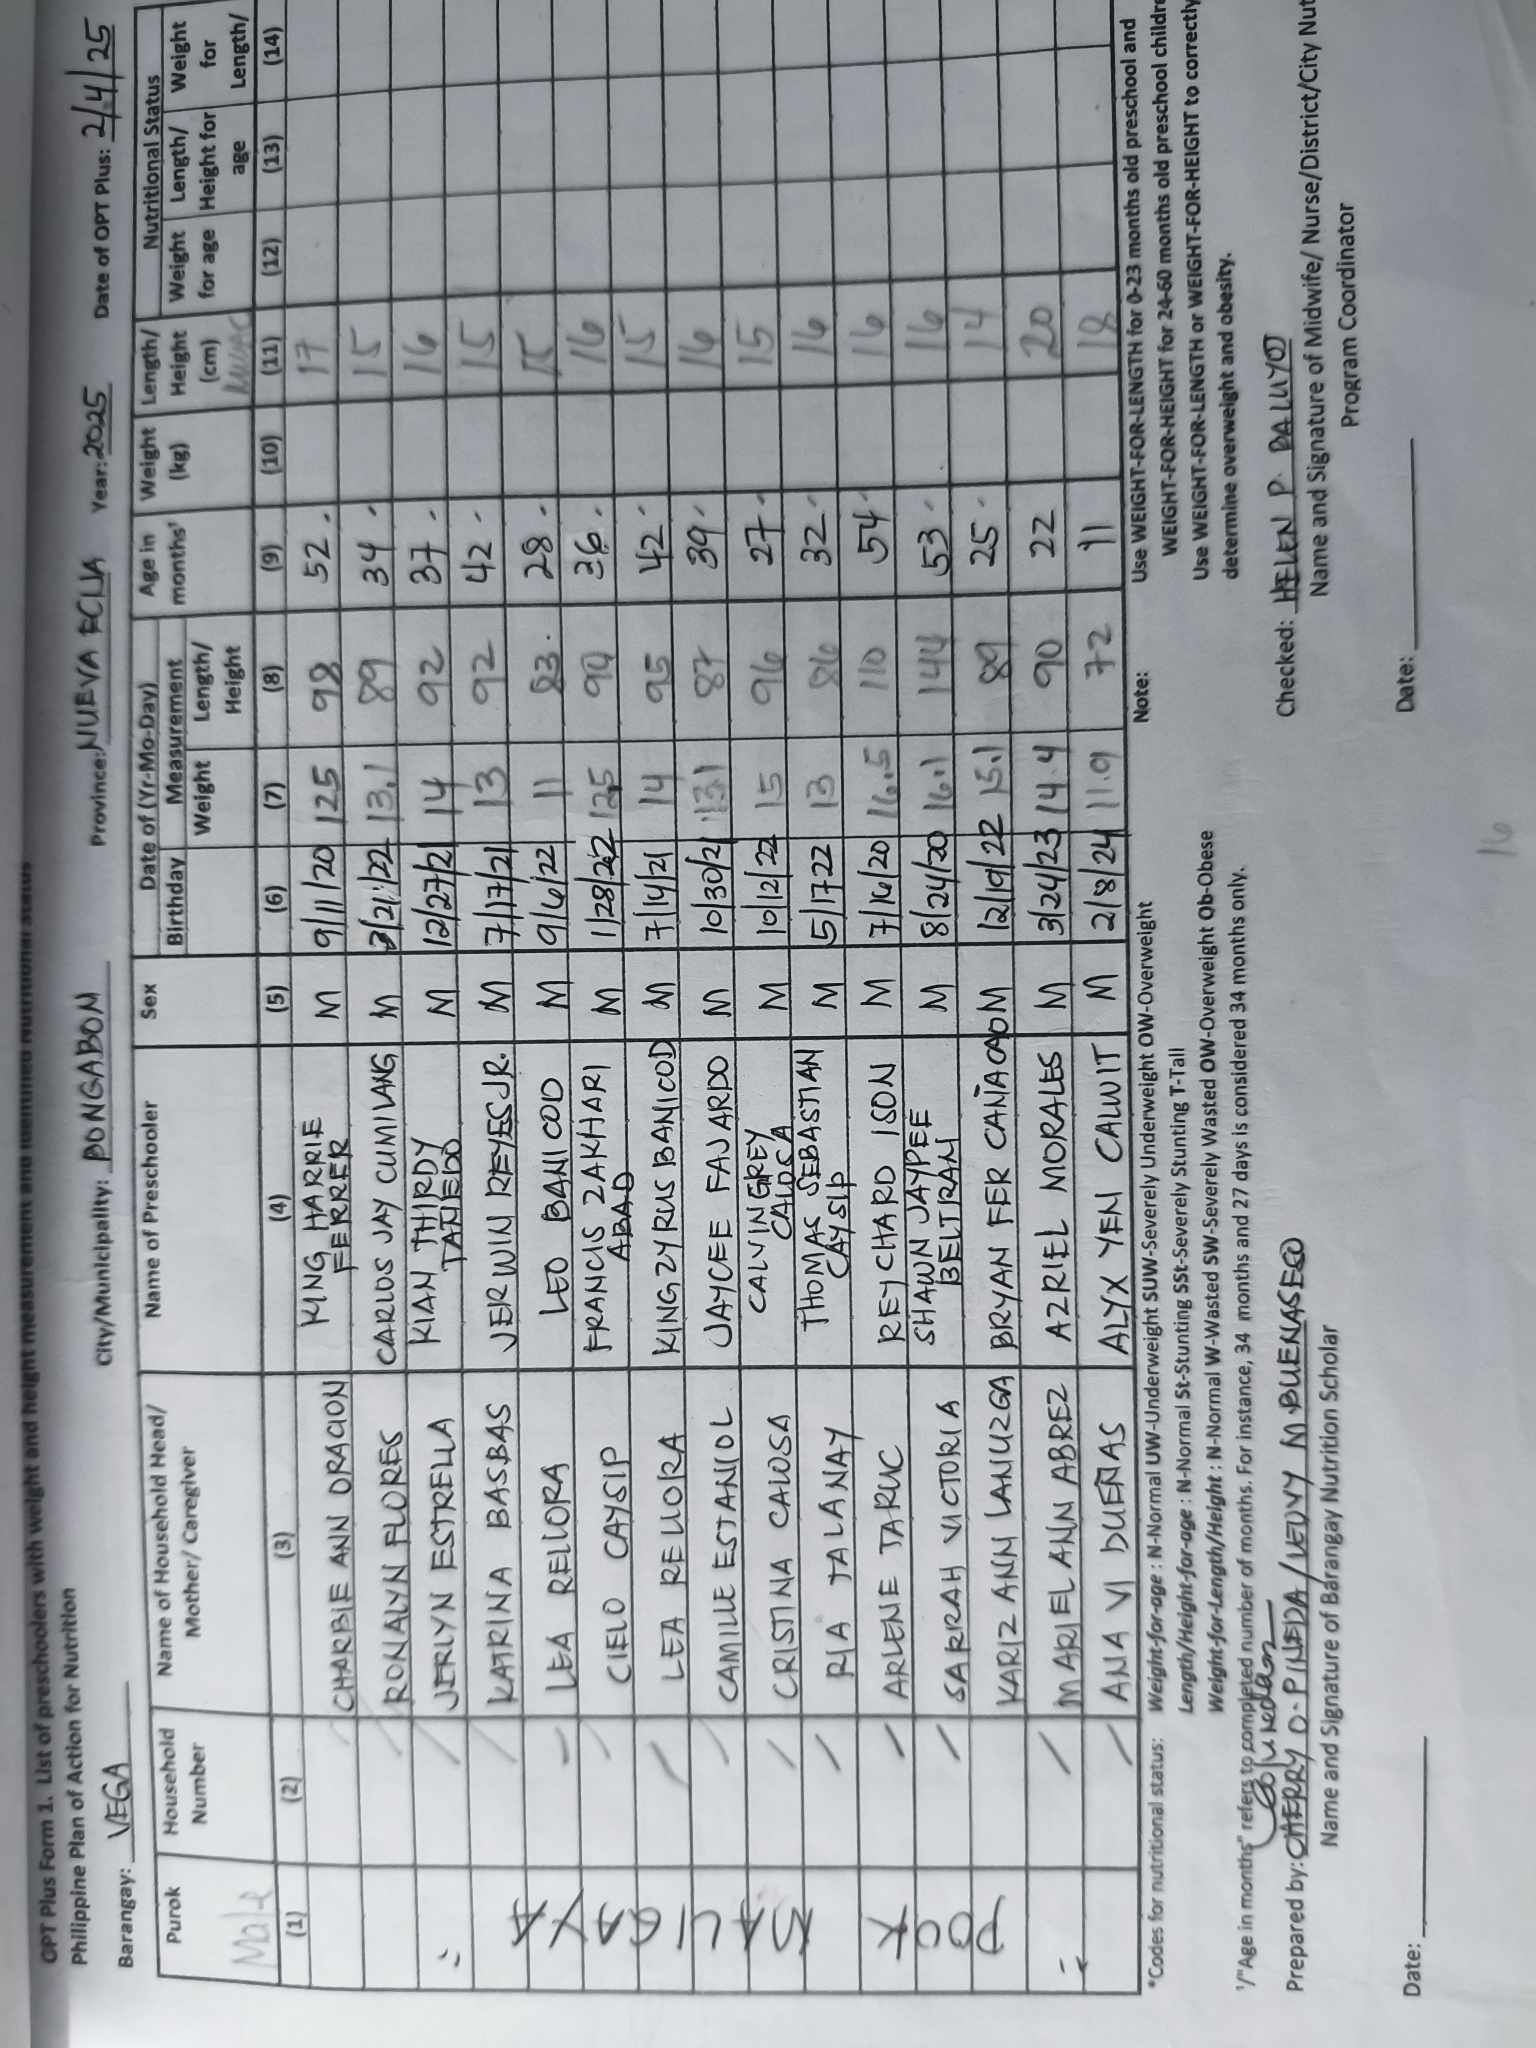 OPT Plus Form 1. List of preschoolers with weight and height measurement and Identified Nutritional Status
Philippine Plan of Action for Nutrition
Barangay: VEGA City/Municipality: BONGABON Province: NUEVA ECIJA Year: 2025 Date of OPT Plus: 2/4/25
Purok Household Number Name of Household Head/ Mother/ Caregiver Name of Preschooler Sex Date of (Yr-Mo-Day) Birthday Measurement Weight Length/ Height Age in months¹ Weight (kg) Length/ Height (cm) MUAC Nutritional Status Weight for age Length/ Height for age Weight for Length/
Male
(1) (2) (3) (4) (5) (6) (7) (8) (9) (10) (11) (12) (13) (14)
POOK MALIGAYA
CHARBIE ANN ORACION KING HARRIE FERRER M 9/11/20 125 98 52 17
RONALYN FLORES CARLOS JAY CUMILANG M 3/21/22 13.1 89 34 15
JERLYN ESTRELLA KIAN THIRDY TAÑEDO M 12/27/21 14 92 37 16
KATRINA BASBAS JERWIN REYES JR. M 7/17/21 13 92 42 15
LEA RELLORA LEO BANICOD M 9/6/22 11 83 28 15
CIELO CAYSIP FRANCIS ZAKHARI ABAD M 1/28/22 12.5 90 36 16
LEA RELLORA KING ZYRUS BANICOD M 7/14/21 14 95 42 15
CAMILLE ESTANIOL JAYCEE FAJARDO M 10/30/21 13.1 87 39 16
CRISTINA CALOSA CALVIN GREY CALOSA M 10/12/22 15 96 27 15
RIA TALANAY THOMAS SEBASTIAN CAYSIP M 5/1722 13 86 32 16
ARLENE TARUC REYCHARD ISON M 7/16/20 16.5 110 54 16
SARRAH VICTORIA SHAWN JAYPEE BELTRAN M 8/24/20 16.1 144 53 16
KARIZ ANN LANUZGA BRYAN FER CAÑACAO M 12/19/22 15.1 89 25 14
MARIEL ANN ABREZ AZRIEL MORALES M 3/24/23 14.4 90 22 20
ANA VI DUEÑAS ALYX YEN CALWIT M 2/8/24 11.9 72 11 18
*Codes for nutritional status: Weight-for-age : N-Normal UW-Underweight SUW-Severely Underweight OW-Overweight
Length/Height-for-age : N-Normal St-Stunting SSt-Severely Stunting T-Tall
Weight-for-Length/Height : N-Normal W-Wasted SW-Severely Wasted OW-Overweight Ob-Obese
¹/"Age in months" refers to completed number of months. For instance, 34 months and 27 days is considered 34 months only.
Note: Use WEIGHT-FOR-LENGTH for 0-23 months old preschool and
WEIGHT-FOR-HEIGHT for 24-60 months old preschool childre
Use WEIGHT-FOR-LENGTH or WEIGHT-FOR-HEIGHT to correctly
determine overweight and obesity.
Prepared by: CHERRY O. PINEDA / M. BUENASESO
Name and Signature of Barangay Nutrition Scholar
Checked: HELEN P. BALUYOT
Name and Signature of Midwife/ Nurse/District/City Nut
Program Coordinator
Date:
Date:
16